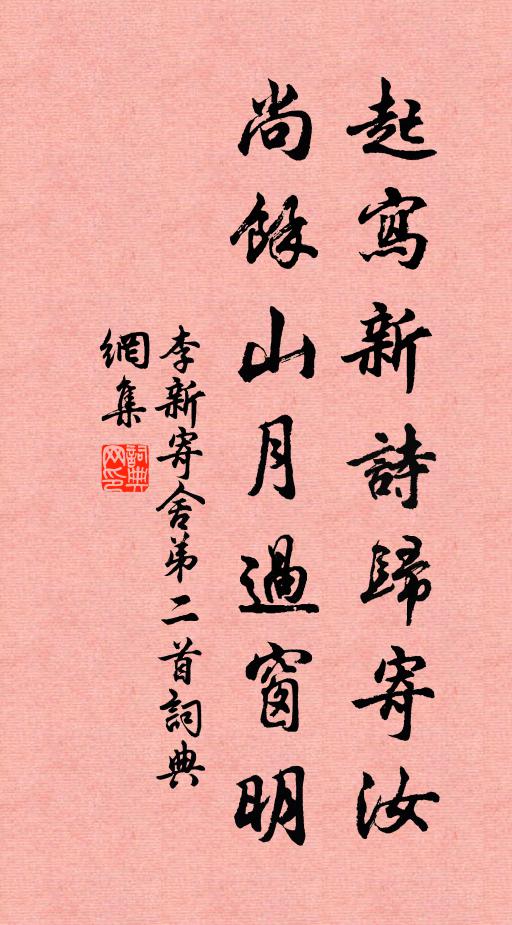 起寫新詩歸寄汝
尚餘山月過窗明
李新寄舍弟二首詞典
網集
詞典
网印